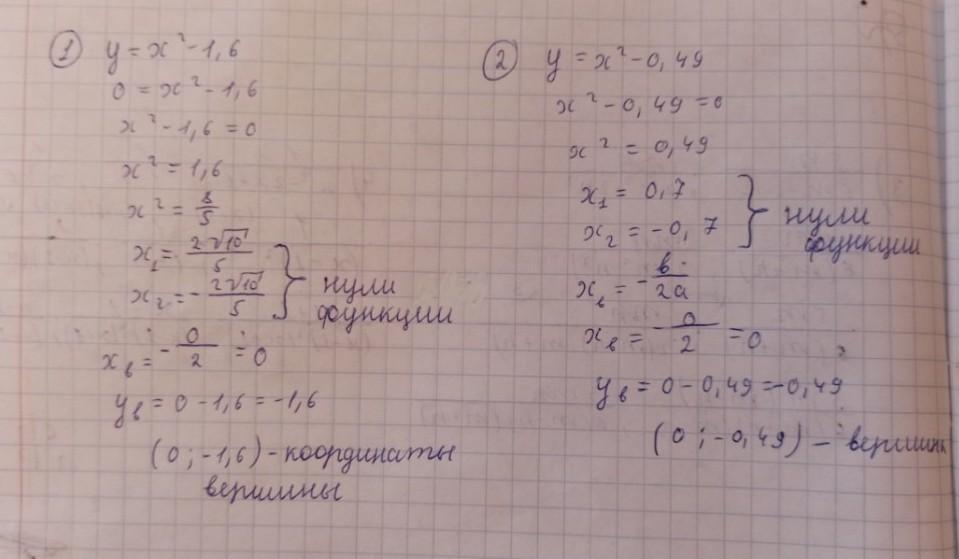 ① y = x² - 1,6
0 = x² - 1,6
x² - 1,6 = 0
x² = 1,6
x² = 8/5
x₁ = 2√10/5
x₂ = - 2√10/5 } нули функции
xв = - 0/2 = 0
yв = 0 - 1,6 = -1,6
(0 ; -1,6) - координаты
вершины
② y = x² - 0,49
x² - 0,49 = 0
x² = 0,49
x₁ = 0,7
x₂ = -0,7 } нули функции
xв = - в/2a
xв = - 0/2 = 0
yв = 0 - 0,49 = -0,49
(0 ; -0,49) - вершины